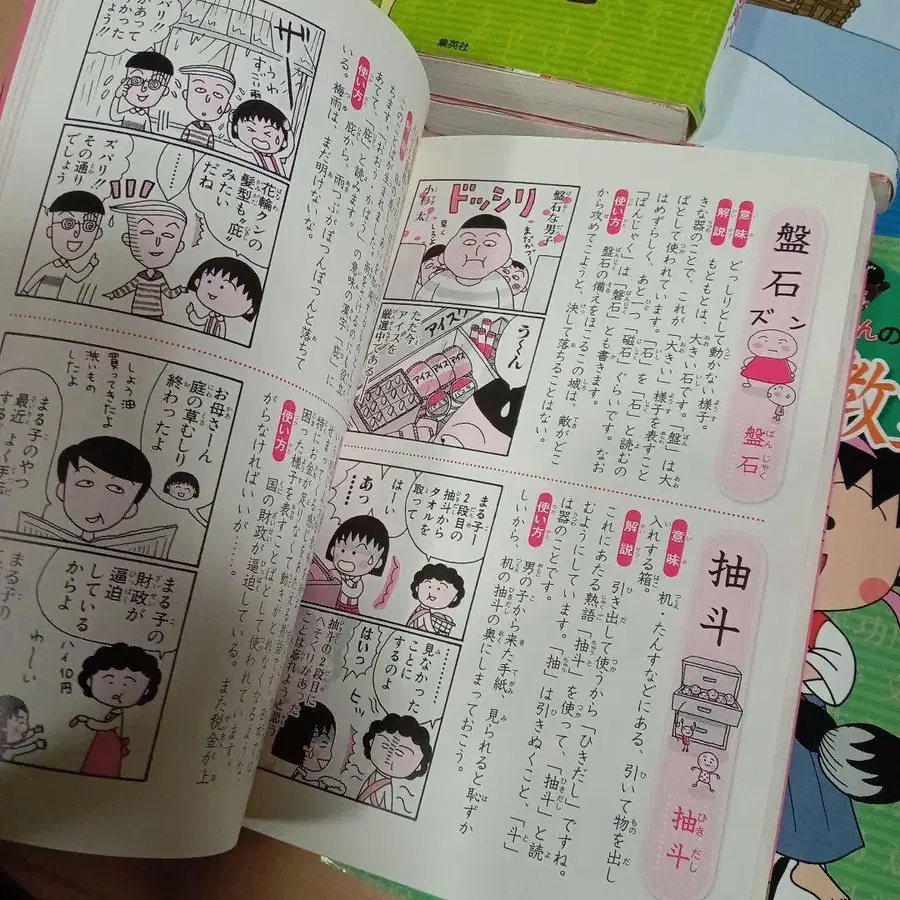 集英社
盤石
ズン
盤石
ばんじゃく
意味
どっしりとして動かない様子。
解説
もともとは、大きい石です。「盤」は大
きな器のことで、これが「大きい」様子を表すこと
ばとして使われています。「石」を「石」と読むの
はめずらしく、あと一つ「磁石」ぐらいです。なお
「ばんじゃく」は「磐石」とも書きます。
使い方
盤石の備えをほこるこの城は、敵がどこ
から攻めてこようと、決して落ちることはない。
盤石な男子
まだかブ〜
ドッシリ
早くしろと
小杉太
う〜ん
アイス!!
アイス
アイス
アイス
ただ今
アイスを
厳選中である
抽斗
抽斗
ひきだし
意味
机、たんすなどにある、引いて物を出し
入れする箱。
解説
引き出して使うから「ひきだし」ですね。
これにあたる熟語「抽斗」を使って、「抽斗」と読
むようにしています。「抽」は引きぬくこと、「斗」
は器のことです。
使い方
男の子から来た手紙、見られると恥ずか
しいから、机の抽斗の奥にしまっておこう。
まる子ー
2段目の
抽斗から
タオルを
取って
はーい
あっ
……
見なかった
ことに
しなさい
はいっ
ヒッ
抽斗の2段目に
へそくりがあった
ことは忘れようと思う
バリ!!
があって
かった
しょう!!
うわ
すごい雨
ザー
花輪クンの
髪型も〝庇〟
みたい
だね
………
ズバリ!!
その通り
でしょう
使い方
庇から、雨つぶがぽつんぽつんと落ちて
いる。梅雨は、まだ明けないな。
お母さーん
庭の草むしり
終わったよ
しょう油
買ってきたよ
渋いもの
したよ
まる子のやつ
最近
よく手伝
まる子の
財政が
逼迫
している
からよ
ハイ10円
わーい
まる子の
使い方
国の財政が逼迫している。また税金が上
がらなければいいが…。